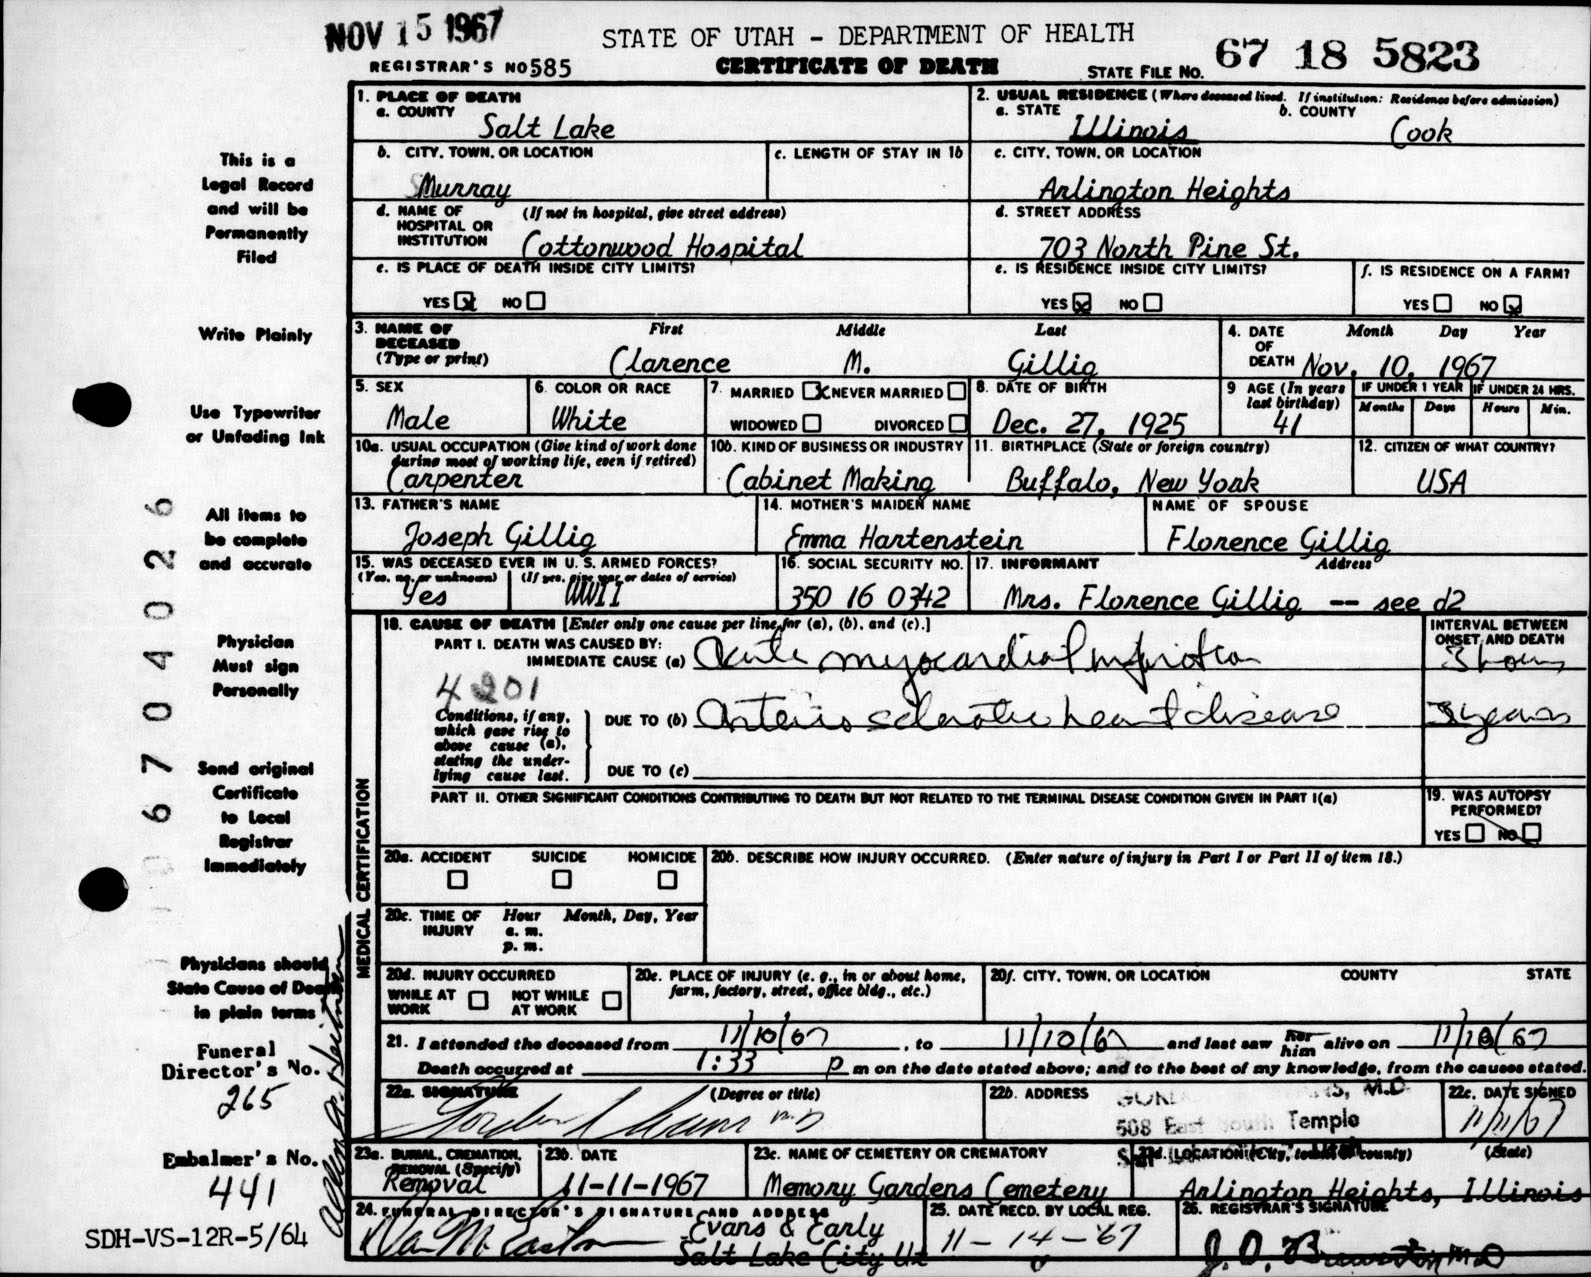 NOV 15 1967
STATE OF UTAH - DEPARTMENT OF HEALTH
67 18 5823
REGISTRAR'S NO 585
CERTIFICATE OF DEATH
STATE FILE NO.
1. PLACE OF DEATH
a. COUNTY
Salt Lake
2. USUAL RESIDENCE (Where deceased lived. If institution: Residence before admission)
a. STATE
Illinois
b. COUNTY
Cook
b. CITY, TOWN, OR LOCATION
Murray
c. LENGTH OF STAY IN 1b
c. CITY, TOWN, OR LOCATION
Arlington Heights
d. NAME OF HOSPITAL OR INSTITUTION
(If not in hospital, give street address)
Cottonwood Hospital
d. STREET ADDRESS
703 North Pine St.
e. IS PLACE OF DEATH INSIDE CITY LIMITS?
YES X NO
e. IS RESIDENCE INSIDE CITY LIMITS?
YES X NO
f. IS RESIDENCE ON A FARM?
YES NO X
3. NAME OF DECEASED
(Type or print)
First Middle Last
Clarence M. Gillig
4. DATE OF DEATH
Month Day Year
Nov. 10, 1967
5. SEX
Male
6. COLOR OR RACE
White
7. MARRIED X NEVER MARRIED
WIDOWED DIVORCED
8. DATE OF BIRTH
Dec. 27, 1925
9 AGE (In years last birthday)
41
IF UNDER 1 YEAR
Months Days
IF UNDER 24 HRS.
Hours Min.
10a. USUAL OCCUPATION (Give kind of work done during most of working life, even if retired)
Carpenter
10b. KIND OF BUSINESS OR INDUSTRY
Cabinet Making
11. BIRTHPLACE (State or foreign country)
Buffalo, New York
12. CITIZEN OF WHAT COUNTRY?
USA
13. FATHER'S NAME
Joseph Gillig
14. MOTHER'S MAIDEN NAME
Emma Hartenstein
NAME OF SPOUSE
Florence Gillig
15. WAS DECEASED EVER IN U. S. ARMED FORCES?
(Yes, no, or unknown) (If yes, give war or dates of service)
Yes WWII
16. SOCIAL SECURITY NO.
350 16 0342
17. INFORMANT Address
Mrs. Florence Gillig -- see d2
MEDICAL CERTIFICATION
18. CAUSE OF DEATH [Enter only one cause per line for (a), (b), and (c).]
INTERVAL BETWEEN ONSET AND DEATH
PART I. DEATH WAS CAUSED BY:
IMMEDIATE CAUSE (a) Acute myocardial infarction
3 hours
4201
Conditions, if any, which gave rise to above cause (a), stating the underlying cause last.
DUE TO (b) Arterio sclerotic heart disease
3 years
DUE TO (c)
PART II. OTHER SIGNIFICANT CONDITIONS CONTRIBUTING TO DEATH BUT NOT RELATED TO THE TERMINAL DISEASE CONDITION GIVEN IN PART I(a)
19. WAS AUTOPSY PERFORMED?
YES NO
20a. ACCIDENT SUICIDE HOMICIDE
20b. DESCRIBE HOW INJURY OCCURRED. (Enter nature of injury in Part I or Part II of item 18.)
20c. TIME OF INJURY
Hour Month, Day, Year
a. m.
p. m.
20d. INJURY OCCURRED
WHILE AT WORK NOT WHILE AT WORK
20e. PLACE OF INJURY (e. g., in or about home, farm, factory, street, office bldg., etc.)
20f. CITY, TOWN, OR LOCATION COUNTY STATE
21. I attended the deceased from 11/10/67, to 11/10/67 and last saw her him alive on 11/10/67
Death occurred at 1:33 p m on the date stated above; and to the best of my knowledge, from the causes stated.
22a. SIGNATURE
(Degree or title)
MD
22b. ADDRESS
M.D.
508 East South Temple
22c. DATE SIGNED
11/11/67
23a. BURIAL, CREMATION, REMOVAL (Specify)
Removal
23b. DATE
11-11-1967
23c. NAME OF CEMETERY OR CREMATORY
Memory Gardens Cemetery
23d. LOCATION (City, town, or county) (State)
Arlington Heights, Illinois
24. FUNERAL DIRECTOR'S SIGNATURE AND ADDRESS
Evans & Early
Salt Lake City Ut
25. DATE RECD. BY LOCAL REG.
11-14-67
26. REGISTRAR'S SIGNATURE
This is a
Legal Record
and will be
Permanently
Filed
Write Plainly
Use Typewriter
or Unfading Ink
All items to
be complete
and accurate
Physician
Must sign
Personally
Send original
Certificate
to Local
Registrar
Immediately
Physicians should
State Cause of Death
in plain terms
Funeral
Director's No.
265
Embalmer's No.
441
SDH-VS-12R-5/64
06704026